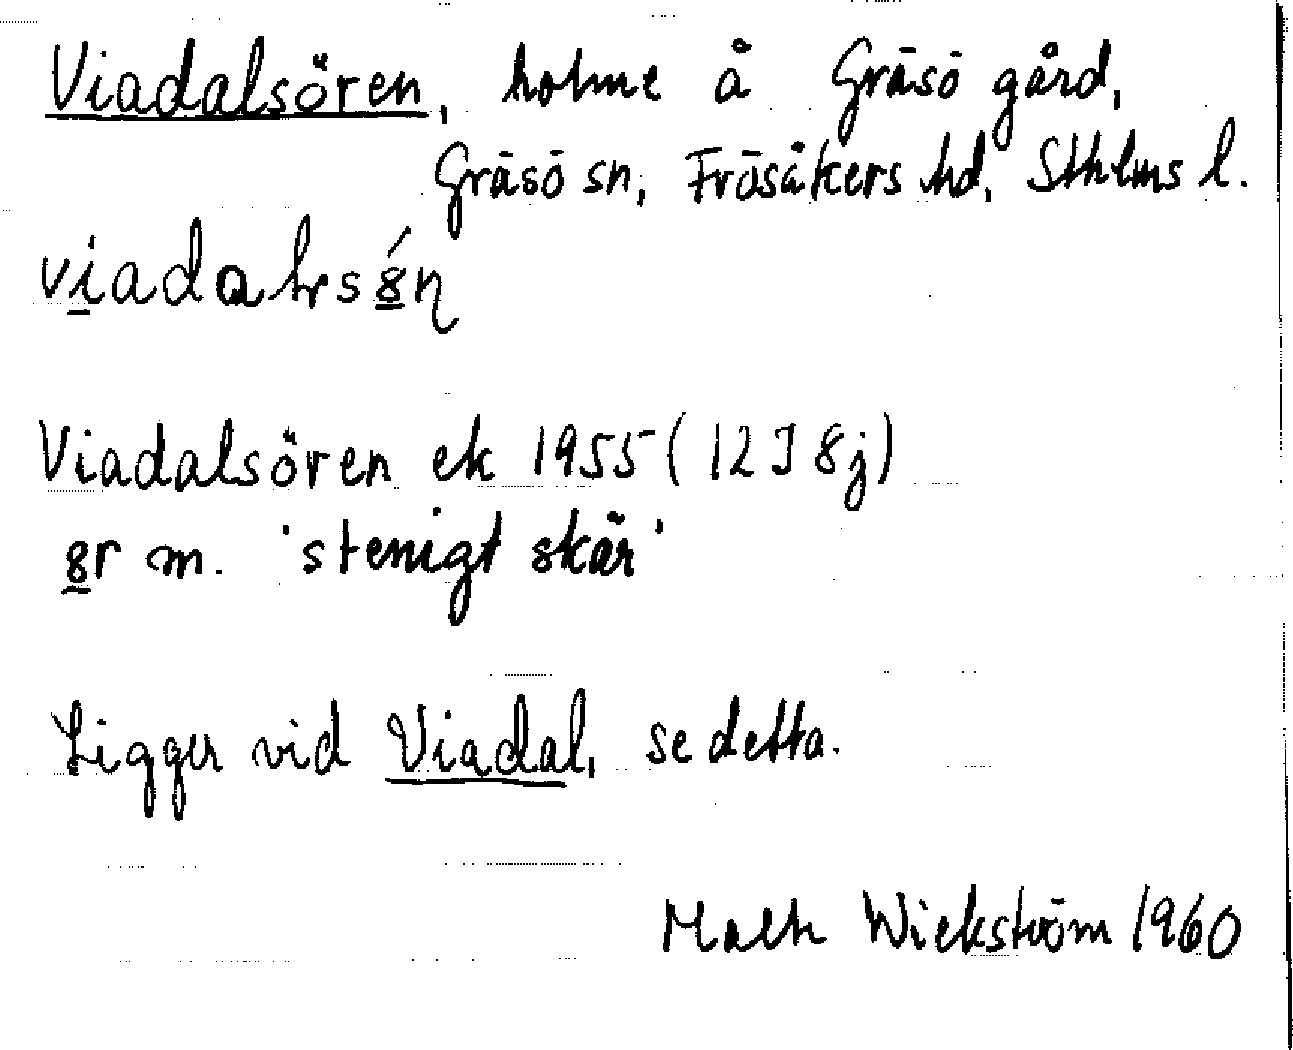 Viadalsören, holme å Gräsö gård,
Gräsö sn, Frösåkers hd, Sthlms l.
Viadalsören ek 1955 (12J 8j)
8r m. 'stenigt skär'
Ligger vid Viadal, se detta.
Wickström 1960